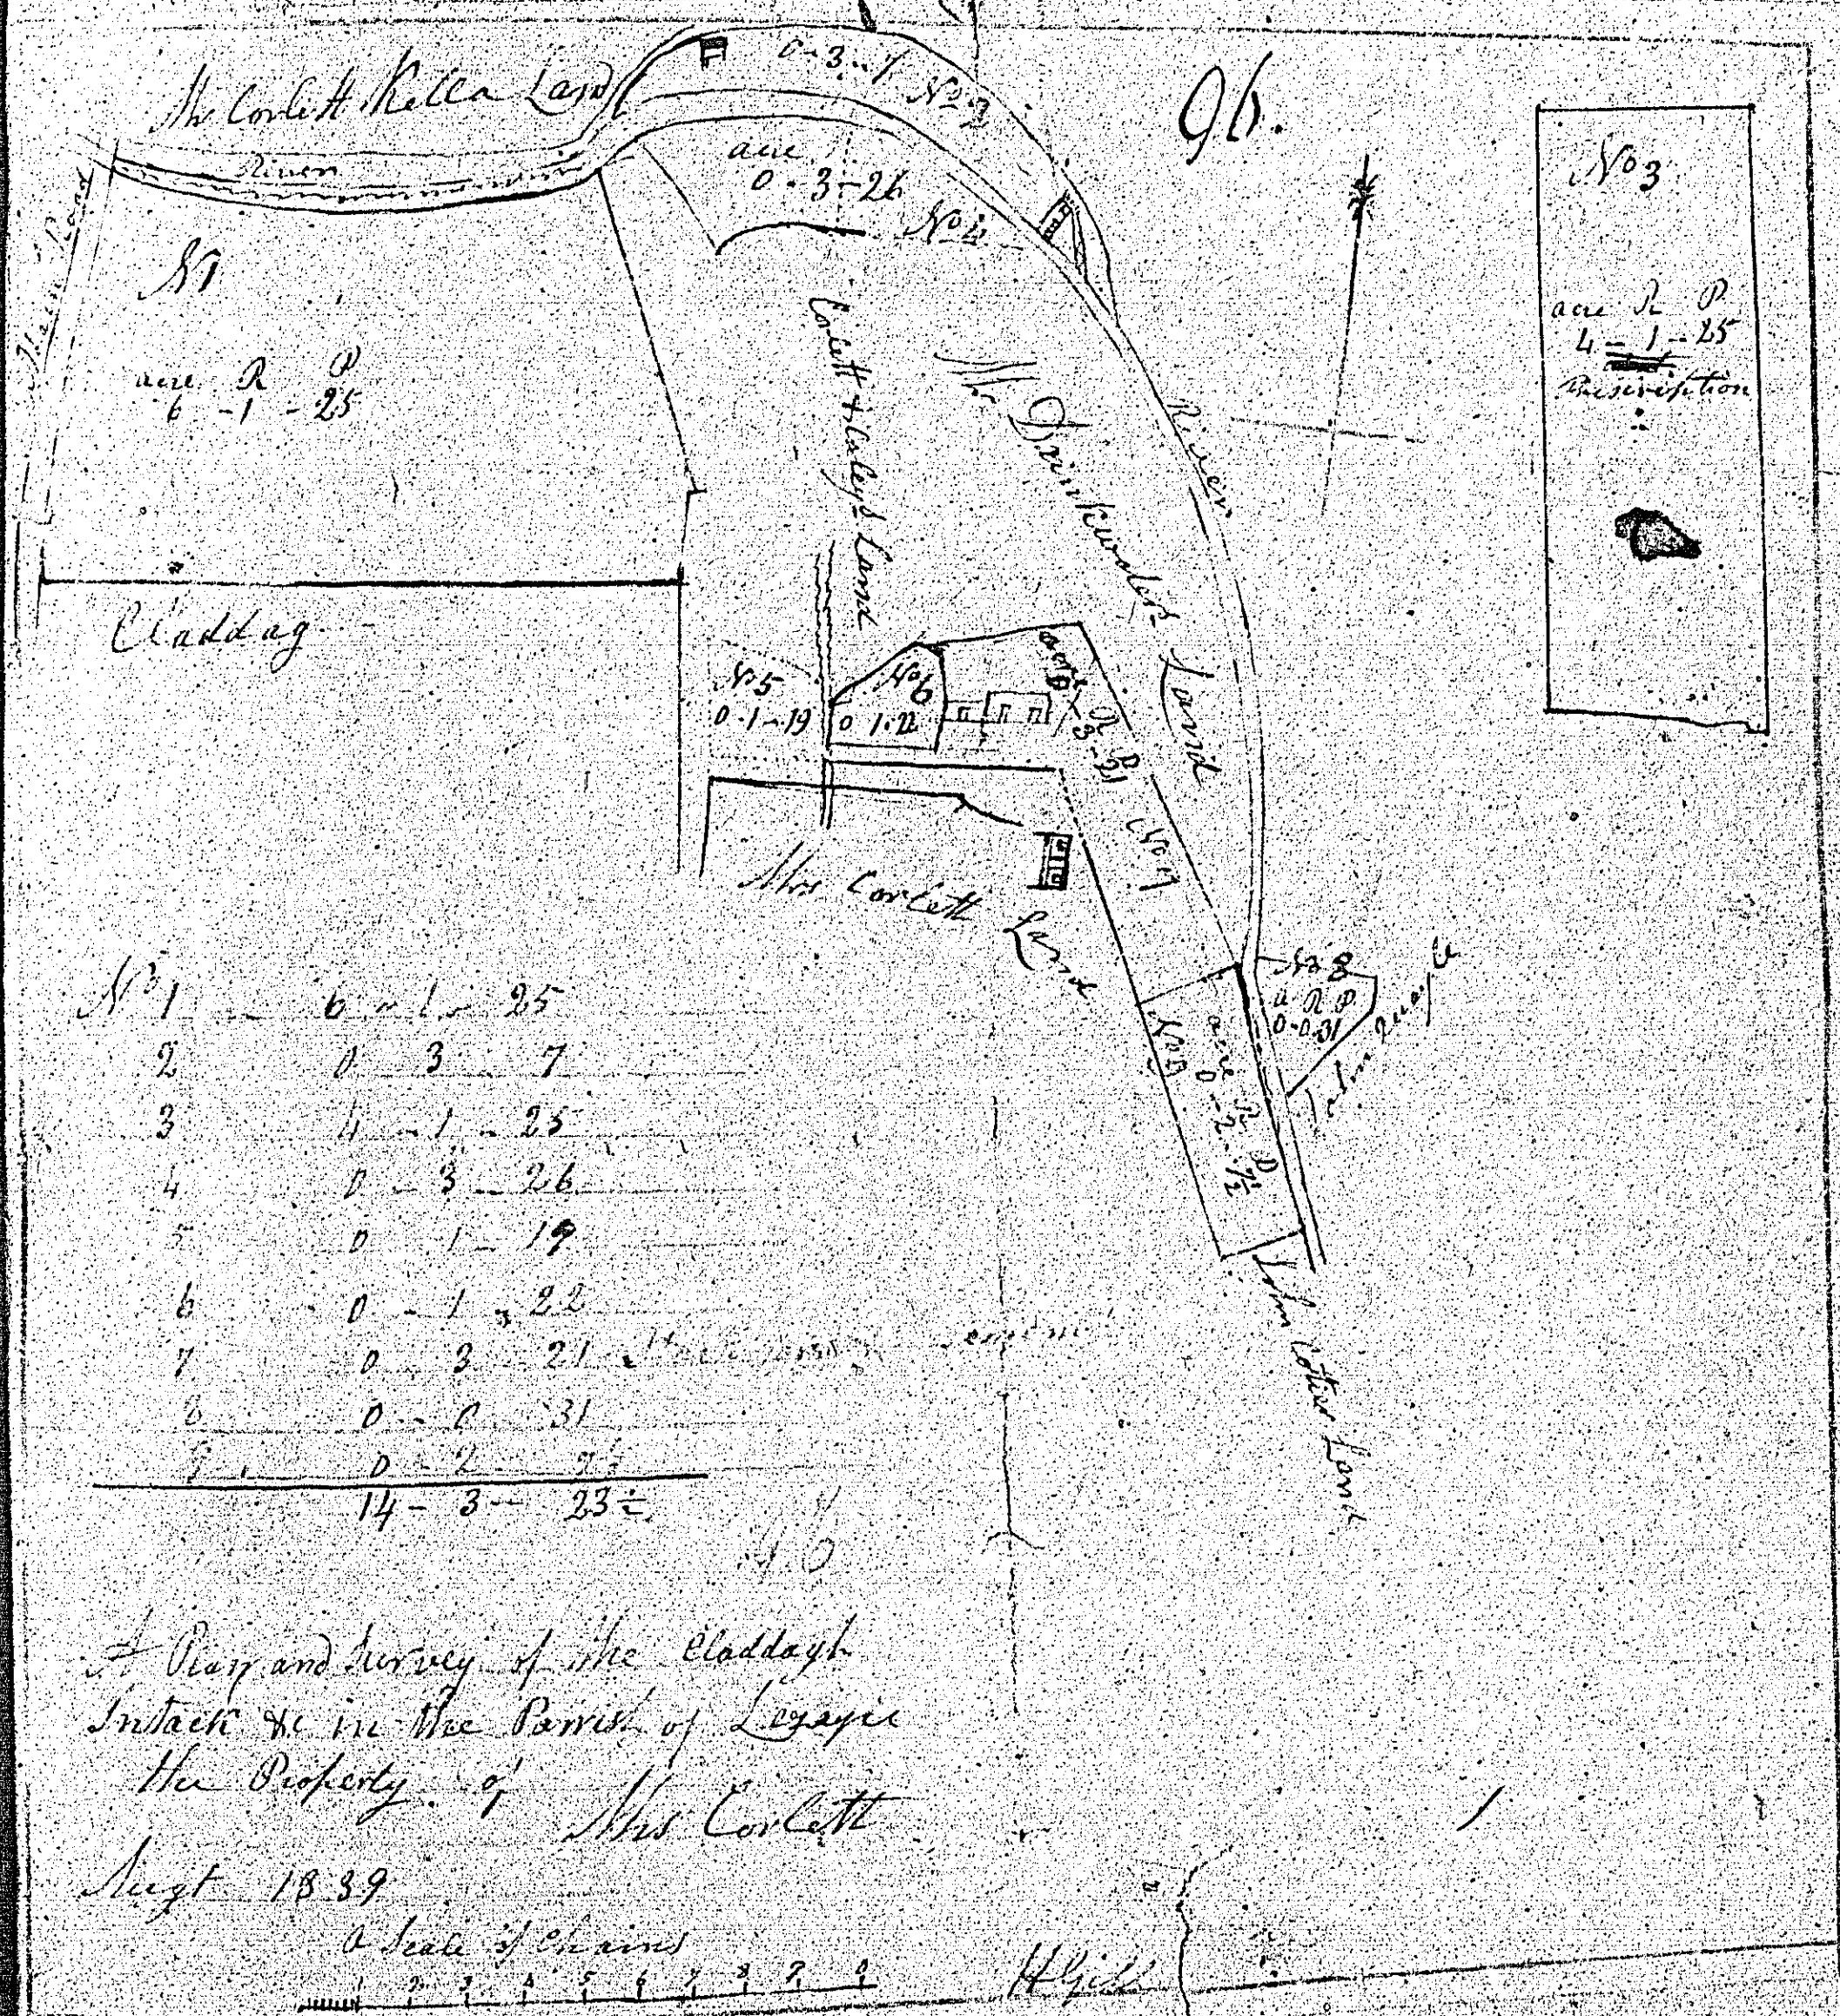 0-3-7 No 2
96.
Mr Corlett Kella Land
River
Main Road
No 1
acre R P
6-1-25
acre
0-3-26
No 4
No 3
acre R P
4-1-25
Corlett & Caleys Land
Mr Drinkwater Land
River
Claddag
No 5
0-1-19
No 6
0 1-22
acre R P
0-3-21
No 7
Mrs Corlett Land
No 8
a R P
0-0-31
John Quayle
No 9
acre R P
0-2-7½
John Cottier Land
No 1 6-1-25
2 0 3 7
3 4-1-25
4 0-3-26
5 0 1-19
6 0-1-22
7 0 3 21
8 0-0 31
9 0-2 7½
14-3-23½
A Plan and Survey of the Claddagh
Intack &c in the Parrish of Lezayre
the Property of
Mrs Corlett
Augt 1839
a Scale of Chains
1 2 3 4 5 6 7 8 9 0
H Gill